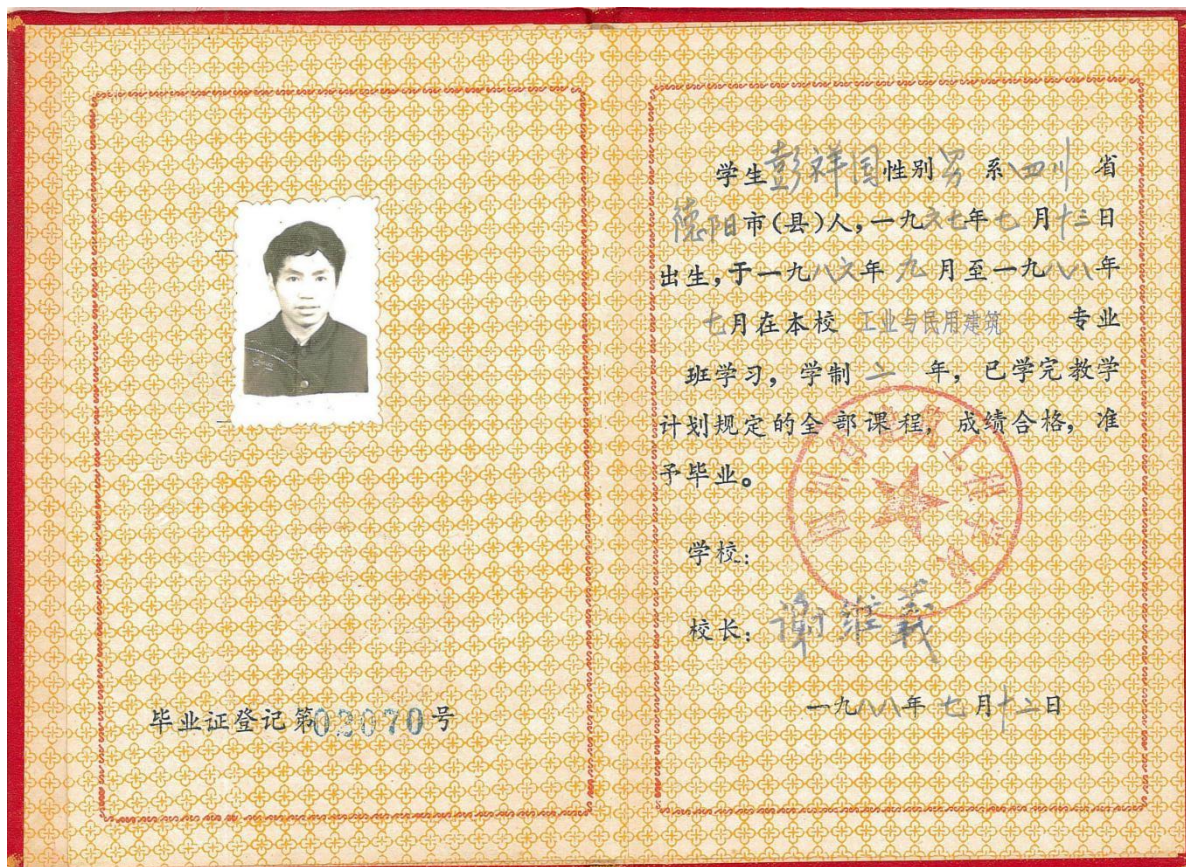 毕业证登记第02070号
学生彭祥国性别男系四川省
德阳市(县)人,一九六七年七月十三日
出生,于一九八六年九月至一九八八年
七月在本校工业与民用建筑专业
班学习,学制二年,已学完教学
计划规定的全部课程,成绩合格,准
予毕业。
学校:
校长:谢维義
一九八八年七月十二日